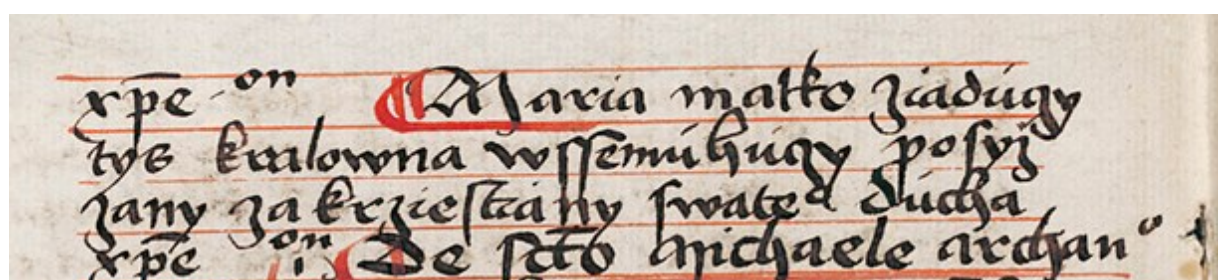 xp̄e on ¶ Maria matko ziadugy
tys kralowna wssemuhugy posyz
zany za krziestiany swateᵃ ducha
xp̄e on De sct̄o Michaele archanᵒ